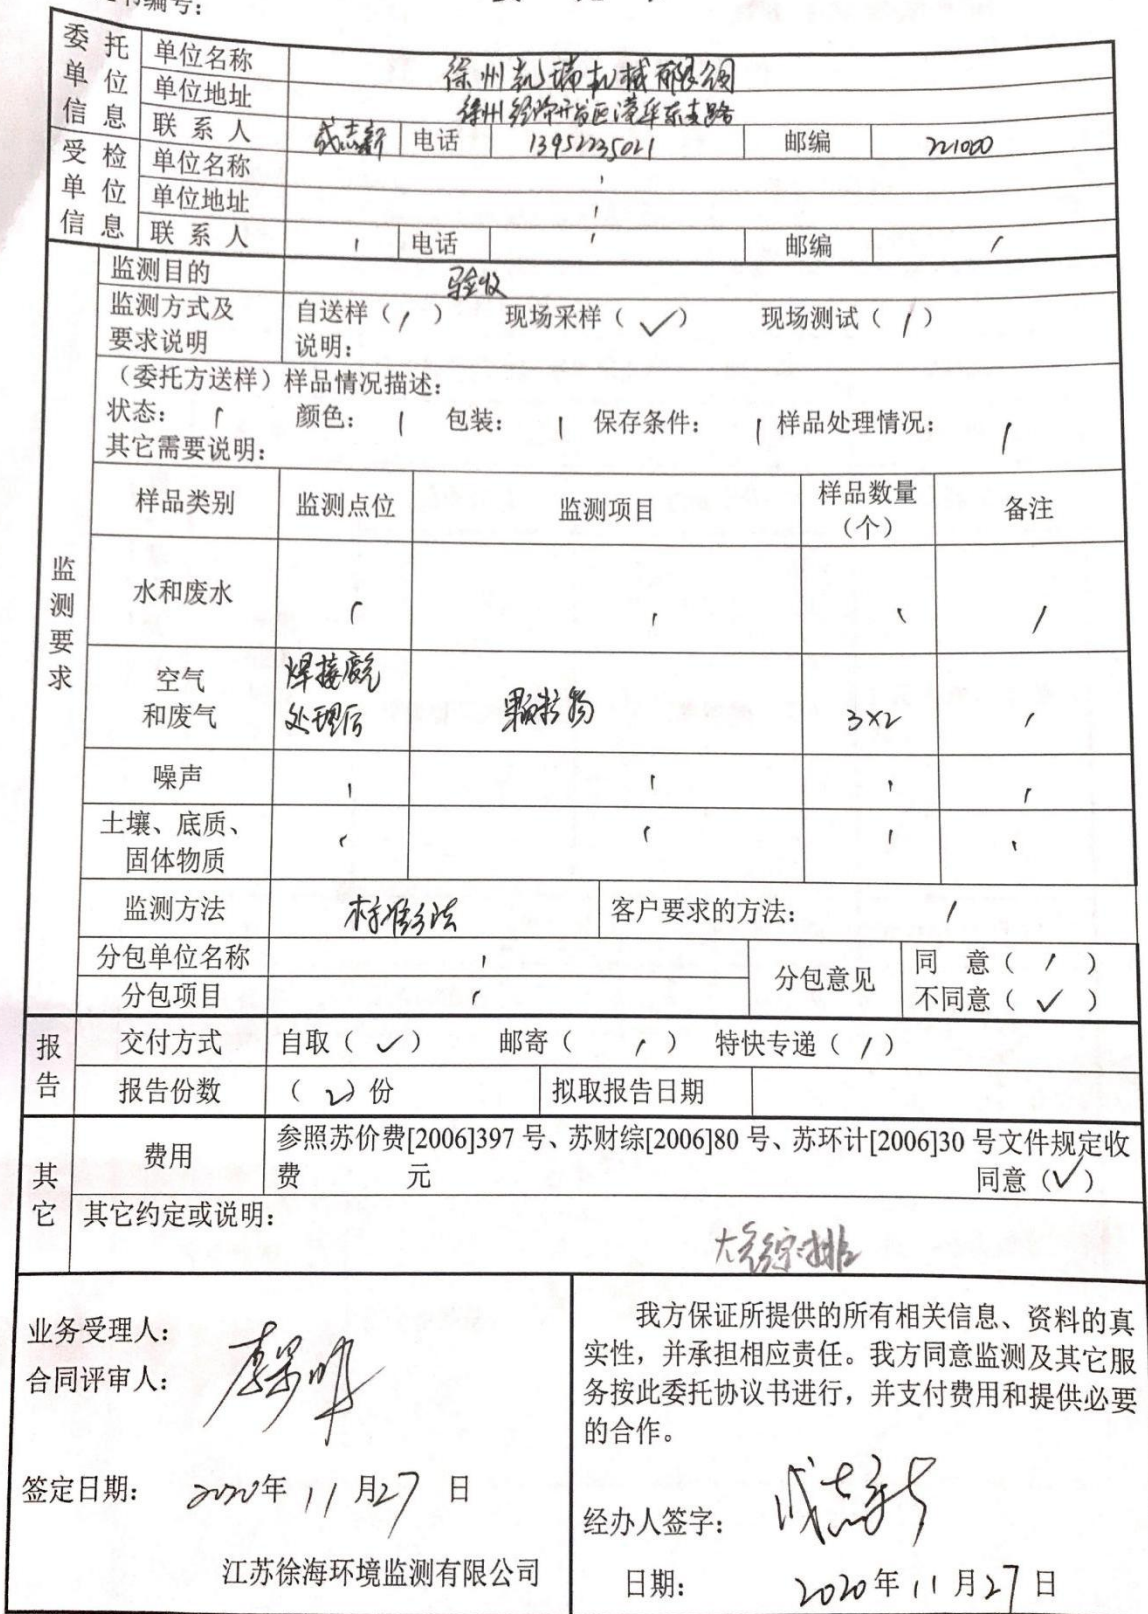 书编号:
委托单位信息
单位名称 徐州凯瑞机械有限公司
单位地址 徐州经济开发区 东支路
联系人 成志新 电话 13952235021 邮编 221000
受检单位信息
单位名称 /
单位地址 /
联系人 / 电话 / 邮编 /
监测要求
监测目的 验收
监测方式及要求说明 自送样(/) 现场采样(✓) 现场测试(/)
说明:
(委托方送样)样品情况描述:
状态: / 颜色: / 包装: / 保存条件: / 样品处理情况: /
其它需要说明:
样品类别 监测点位 监测项目 样品数量(个) 备注
水和废水 / / / /
空气和废气 焊接废气处理后 颗粒物 3×2 /
噪声 / / / /
土壤、底质、固体物质 / / / /
监测方法 标准方法 客户要求的方法: /
分包单位名称 / 分包意见 同 意(/)
分包项目 / 不同意(✓)
报告
交付方式 自取(✓) 邮寄(/) 特快专递(/)
报告份数 (2)份 拟取报告日期
其它
费用 参照苏价费[2006]397 号、苏财综[2006]80 号、苏环计[2006]30 号文件规定收
费 元 同意(✓)
其它约定或说明:
大气综排
业务受理人:
合同评审人:
签定日期: 2020年 11 月27 日
江苏徐海环境监测有限公司
我方保证所提供的所有相关信息、资料的真
实性，并承担相应责任。我方同意监测及其它服
务按此委托协议书进行，并支付费用和提供必要
的合作。
经办人签字: 成志新
日期: 2020年 11 月27 日